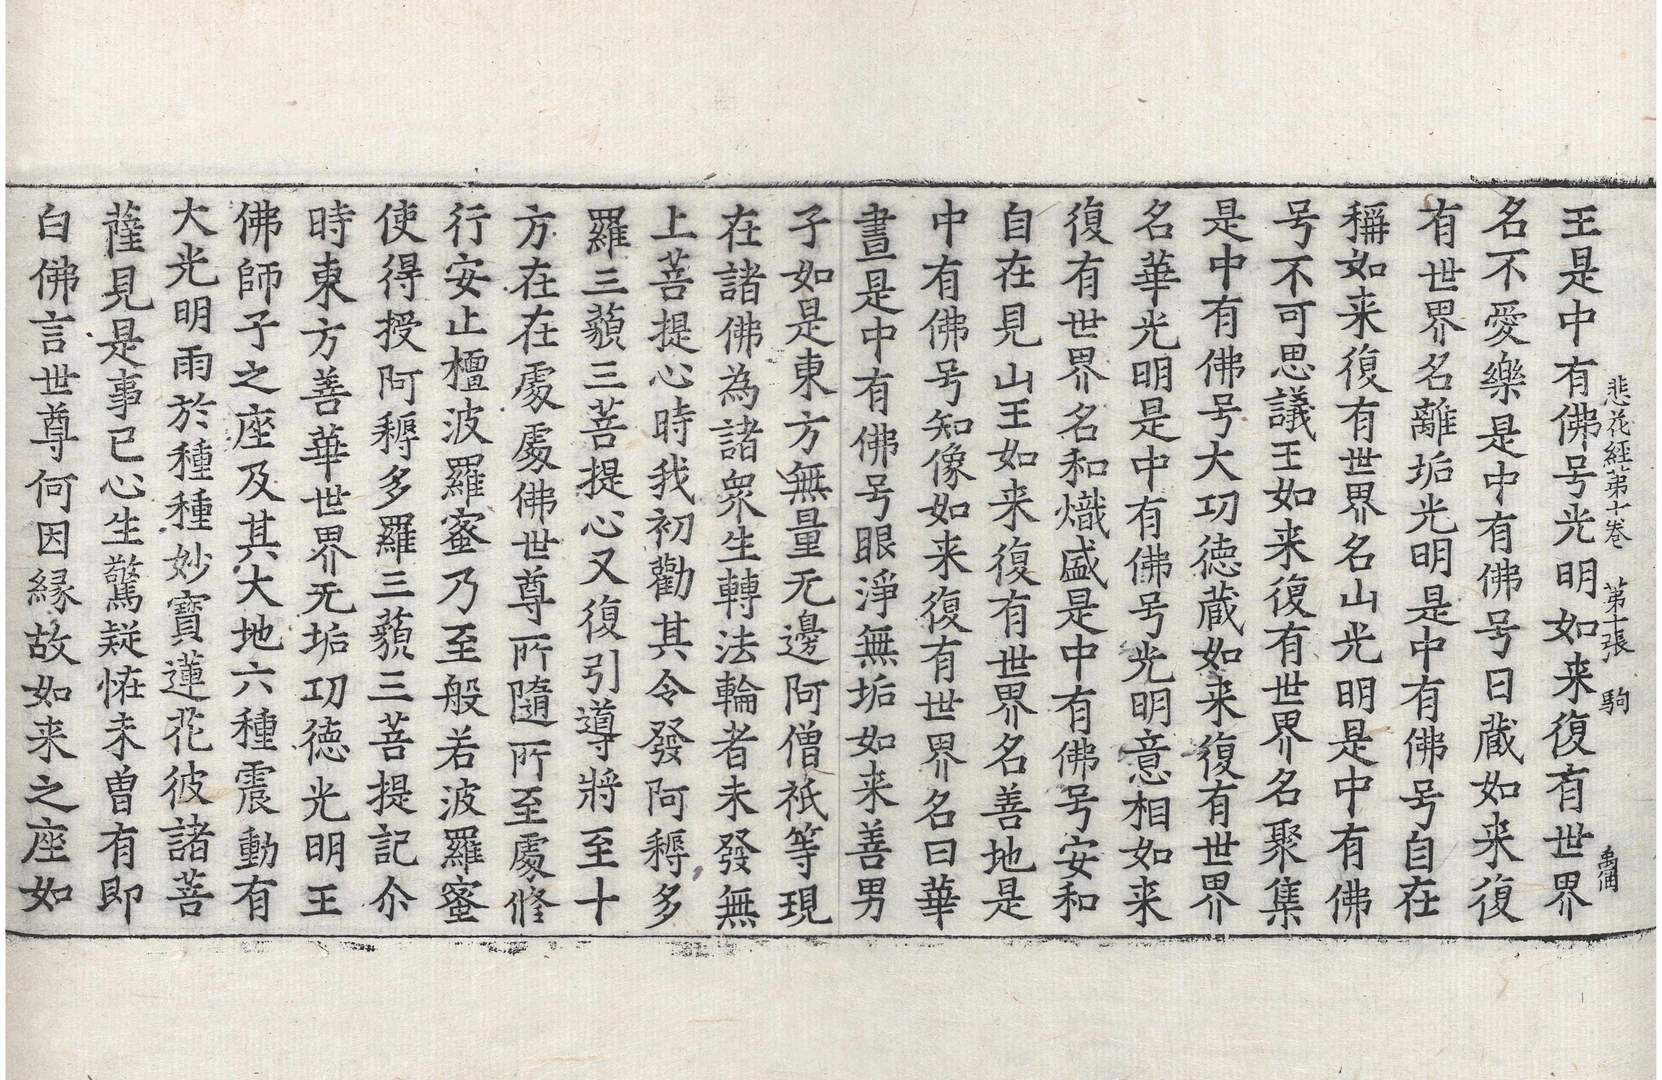 悲花經苐十卷 第十張 駒
王是中有佛号光明如来復有世界
名不愛樂是中有佛号日蔵如来復
有世界名離垢光明是中有佛号自在
稱如来復有世界名山光明是中有佛
号不可思議王如来復有世界名聚集
是中有佛号大功徳蔵如来復有世界
名華光明是中有佛号光明意相如来
復有世界名和熾盛是中有佛号安和
自在見山王如来復有世界名善地是
中有佛号知像如来復有世界名曰華
晝是中有佛号眼淨無垢如来善男
子如是東方無量无邊阿僧祇等現
在諸佛為諸衆生轉法輪者未發無
上菩提心時我初勸其令發阿耨多
羅三藐三菩提心又復引導將至十
方在在處處佛世尊所隨所至處修
行安止檀波羅蜜乃至般若波羅蜜
使得授阿耨多羅三藐三菩提記尒
時東方善華世界无垢功徳光明王
佛師子之座及其大地六種震動有
大光明雨於種種妙寶蓮花彼諸菩
薩見是事已心生驚疑恠未曾有即
白佛言世尊何因縁故如来之座如